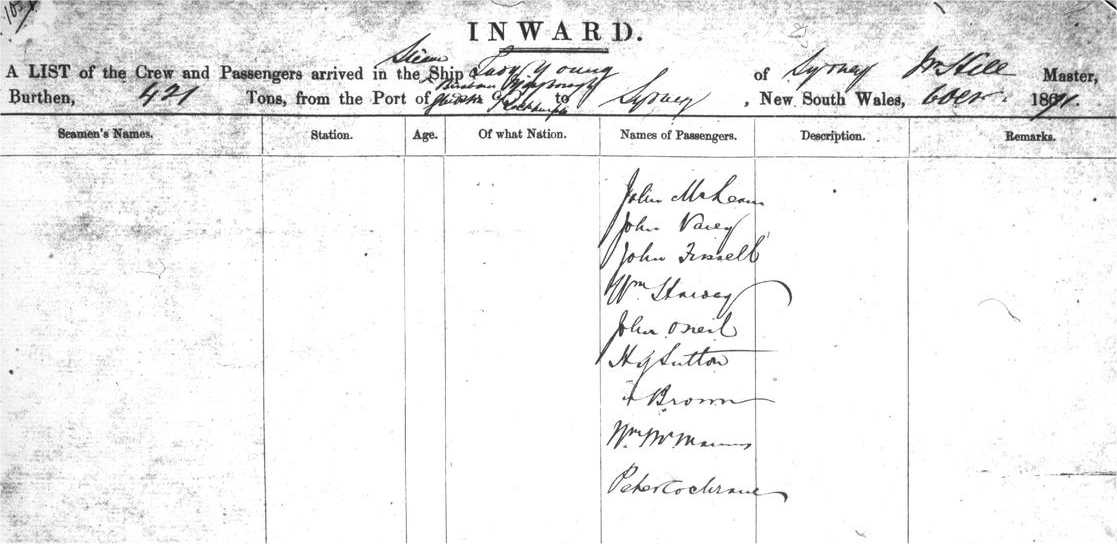 INWARD.
A LIST of the Crew and Passengers arrived in the Ship Lady Young of Sydney Wm Hill Master,
Burthen, 421 Tons, from the Port of to Sydney, New South Wales, 1871.
Seamen's Names. Station. Age. Of what Nation. Names of Passengers. Description. Remarks.
John McLean
John Varey
John Fussell
Wm Harvey
John O'Neil
Hy Sutton
Brown
Wm McManus
Peter Cochrane